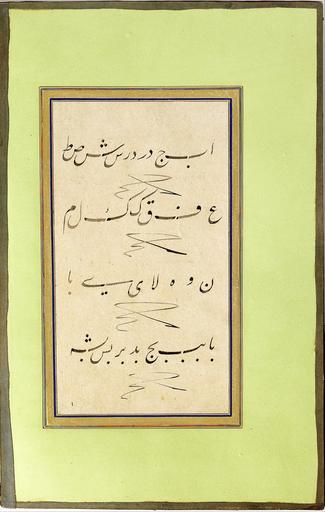 ا ب ج د ر د ر س ش ص ط
ع ف ق ک ک ل م
ن و ه لا ی ے با
با بب بج بد بر بس